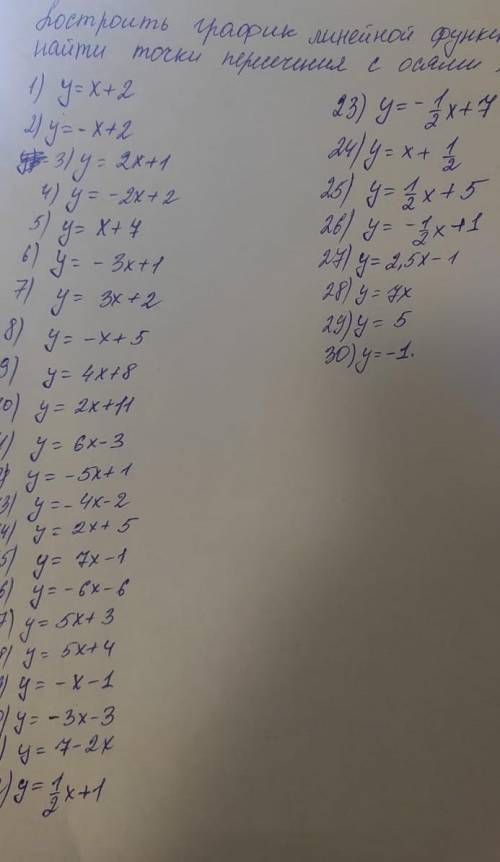 Построить график линейной функ
найти точки пересечения с осями
1) y=x+2
2) y=-x+2
3) y= 2x+1
4) y= -2x+2
5) y= x+7
6) y= -3x+1
7) y= 3x+2
8) y= -x+5
9) y= 4x+8
10) y= 2x+11
1) y= 6x-3
y= -5x+1
3) y=-4x-2
4) y= 2x+5
5) y= 7x-1
6) y=-6x-6
7) y= 5x+3
8) y= 5x+4
) y= -x-1
) y= -3x-3
) y= 7-2x
) y= 1/2 x+1
23) y= -1/2 x+7
24) y= x+ 1/2
25) y= 1/2 x+5
26) y= -1/2 x+1
27) y=2,5x-1
28) y= 7x
29) y= 5
30) y=-1.